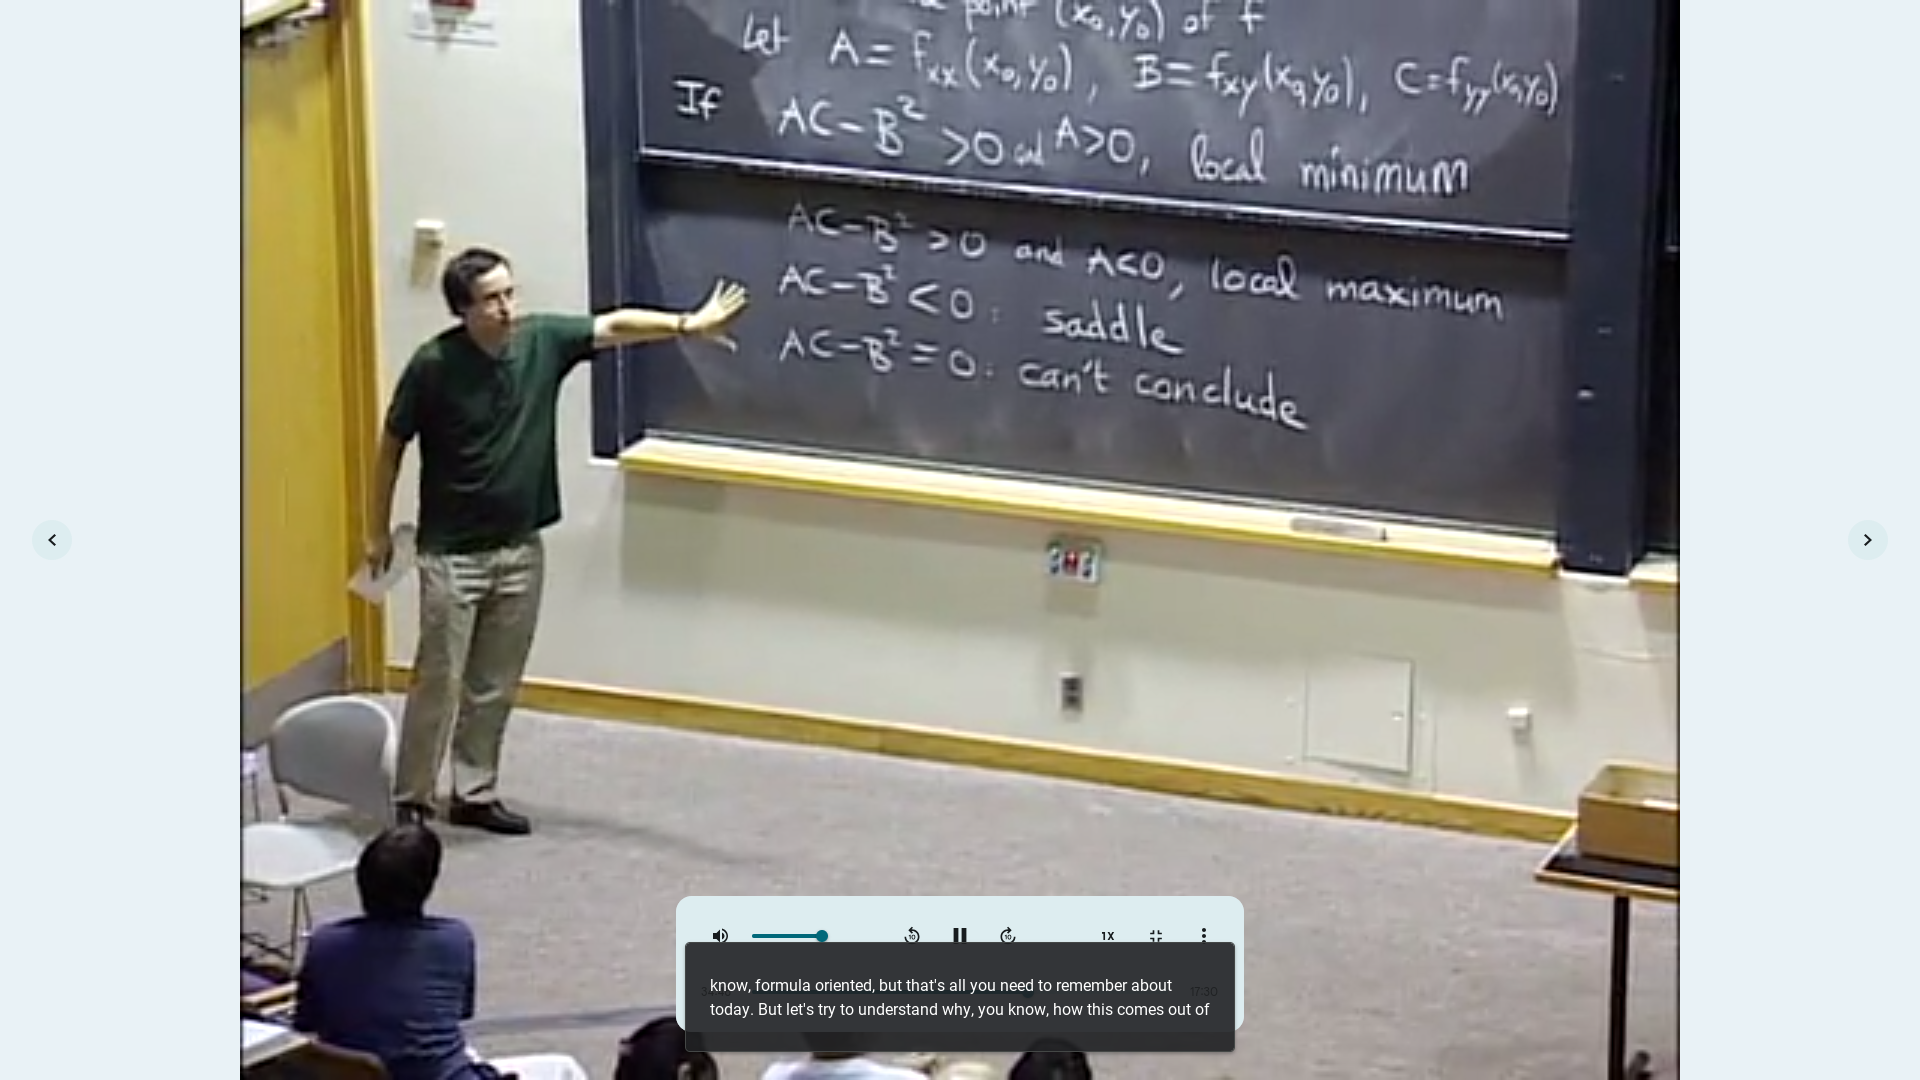 point (x₀,y₀) of f
Let A = fxx(x₀,y₀), B = fxy(x₀,y₀), C = fyy(x₀,y₀)
If AC-B² >0 and A>0, local minimum
AC-B² >0 and A<0, local maximum
AC-B² < 0 : saddle
AC-B² = 0 : can't conclude
10
10
1X
17:30
know, formula oriented, but that's all you need to remember about
today. But let's try to understand why, you know, how this comes out of